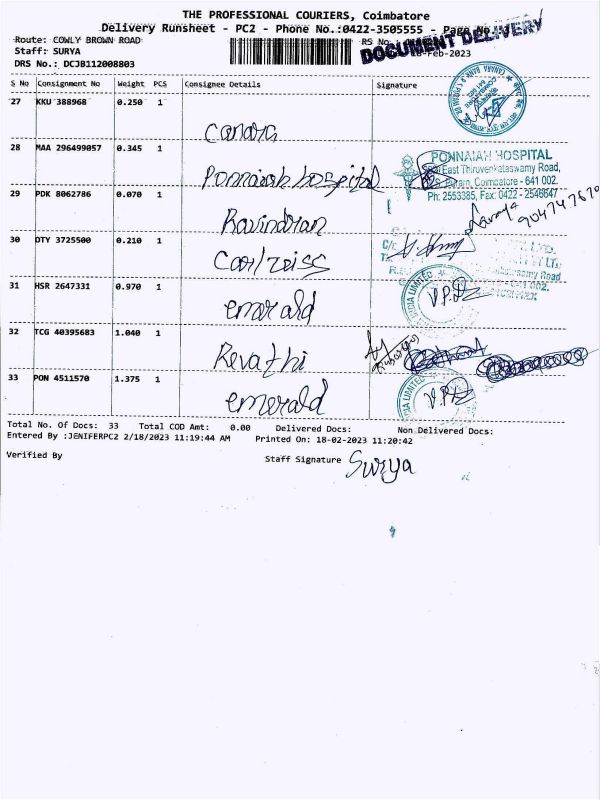 THE PROFESSIONAL COURIERS, Coimbatore
Delivery Runsheet - PC2 - Phone No.:0422-3505555 - Page No.
DOCUMENT DELIVERY
Route: COWLY BROWN ROAD
Staff: SURYA
-Feb-2023
DRS No.: DCJB112008803
S No Consignment No Weight PCS Consignee Details Signature
27 KKU 388968 0.250 1
Canara
28 MAA 296499057 0.345 1
Ponnaiah hospital
PONNAIAH HOSPITAL
East Thiruvenkataswamy Road,
Puram, Coimbatore - 641 002.
Ph: 2553385, Fax: 0422 - 2546647
29 PDK 8062786 0.070 1
Ravindran
30 OTY 3725500 0.210 1
Carl zeiss
31 HSR 2647331 0.970 1
emerald
INDIA LIMITED
32 TCG 40395683 1.040 1
Revathi
33 PON 4511570 1.375 1
emerald
INDIA LIMITED
Total No. Of Docs: 33 Total COD Amt: 0.00 Delivered Docs: Non Delivered Docs:
Entered By :JENIFERPC2 2/18/2023 11:19:44 AM Printed On: 18-02-2023 11:20:42
Verified By Staff Signature Surya